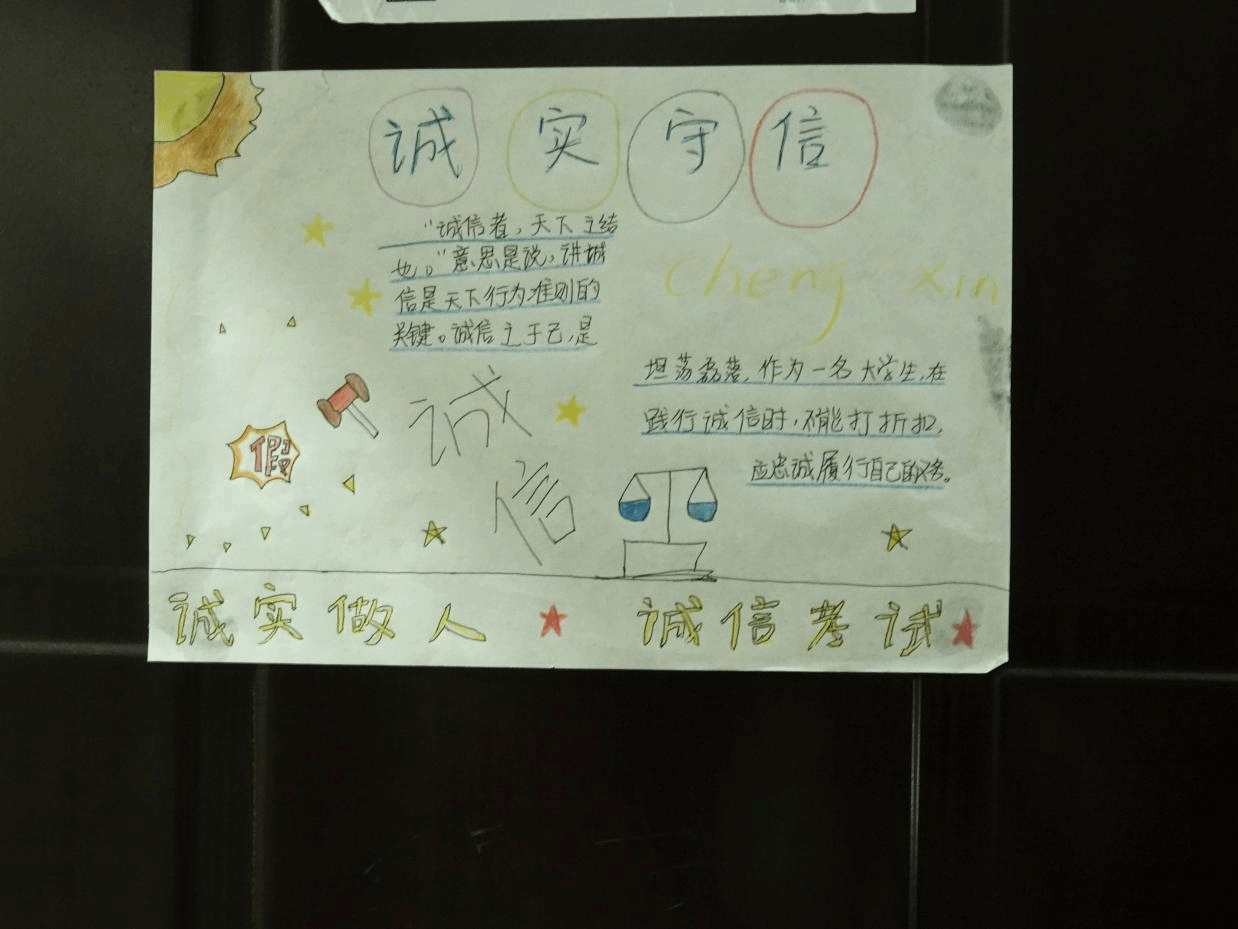 诚实守信
"诚信者,天下之结
也。"意思是说,讲诚
信是天下行为准则的
关键。诚信立于己,是
cheng xin
坦荡磊落,作为一名大学生,在
践行诚信时,不能打折扣,
应忠诚履行自己的
诚
信
假
诚实做人 诚信考试